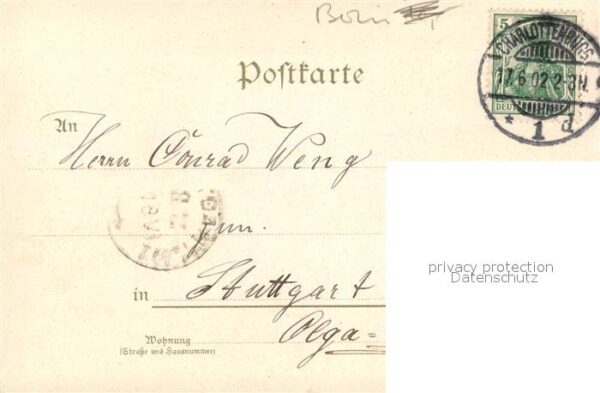 Berlin
5
CHARLOTTENBURG
17.6.02.2-3N.
DEUT
* 1 d
Postkarte
An
Herrn Conrad Weng
jun.
in Stuttgart
Olga=
Wohnung
(Straße und Hausnummer)
privacy protection
Datenschutz